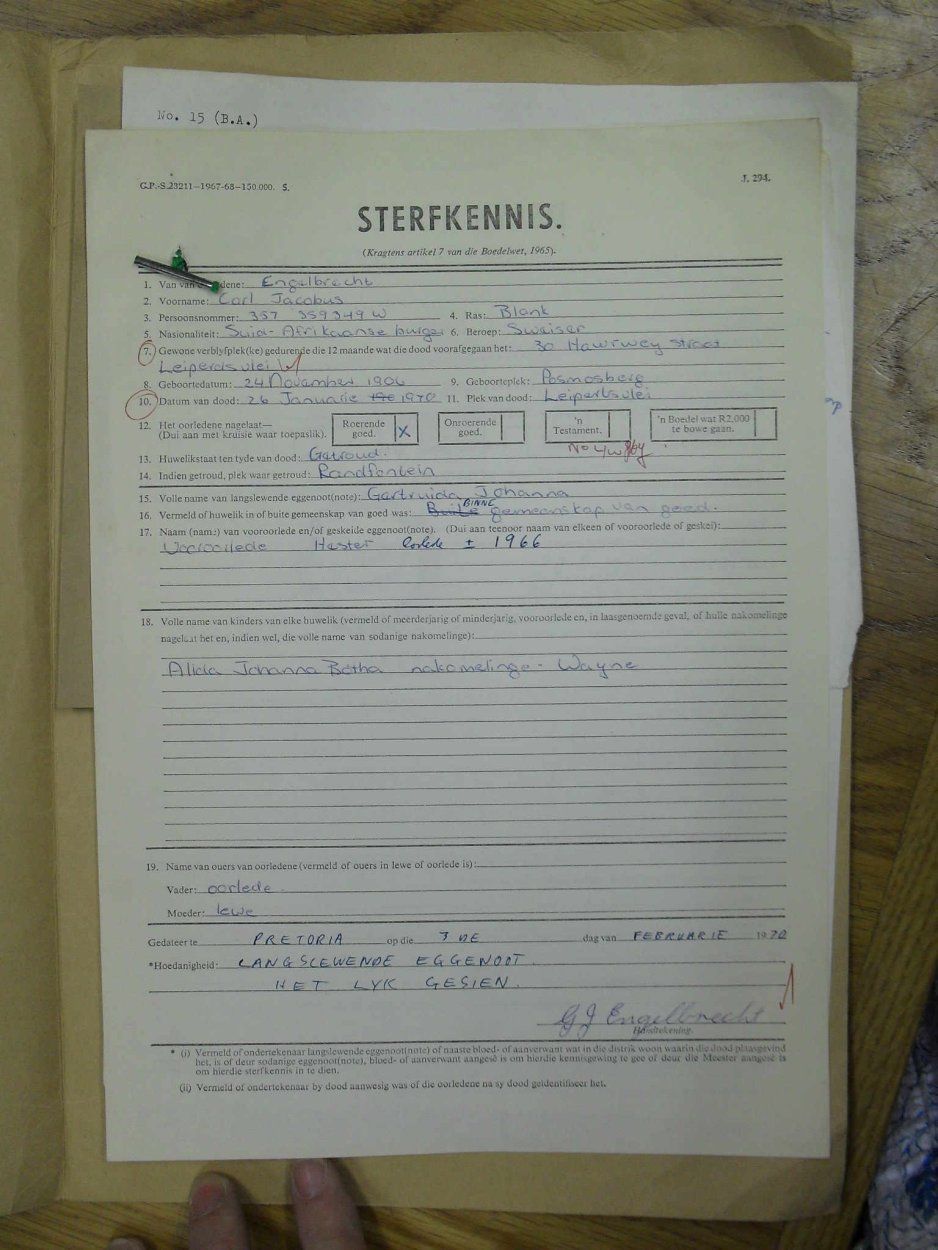 No. 15 (B.A.)
G.P.-S.23211—1967-68—150,000. S.
J. 294.
STERFKENNIS.
(Kragtens artikel 7 van die Boedelwet, 1965).
1. Van van dene: Engelbrecht
2. Voorname: Carl Jacobus
3. Persoonsnommer: 357 359349 W 4. Ras: Blank
5. Nasionaliteit: Suid-Afrikaanse burger 6. Beroep: Sweiser
7. Gewone verblyfplek(ke) gedurende die 12 maande wat die dood voorafgegaan het: 30 straat
8. Geboortedatum: 24 November 1906 9. Geboorteplek: Posmosberg
10. Datum van dood: 26 Januarie 1970 11. Plek van dood:
12. Het oorledene nagelaat—
(Dui aan met kruisie waar toepaslik).
Roerende goed. X
Onroerende goed.
'n Testament.
'n Boedel wat R2,000 te bowe gaan.
13. Huwelikstaat ten tyde van dood: Getroud.
14. Indien getroud, plek waar getroud: Randfontein
15. Volle name van langslewende eggenoot(note): Gertruida Johanna
16. Vermeld of huwelik in of buite gemeenskap van goed was: Buite BINNE gemeenskap van goed.
17. Naam (name) van vooroorlede en/of geskeide eggenoot(note). (Dui aan teenoor naam van elkeen of vooroorlede of geskei):
Vooroorlede Hester Oorlede ± 1966
18. Volle name van kinders van elke huwelik (vermeld of meerderjarig of minderjarig, vooroorlede en, in laasgenoemde geval, of hulle nakomelinge
nagelaat het en, indien wel, die volle name van sodanige nakomelinge):
Alida Johanna Botha nakomelinge - Wayne
19. Name van ouers van oorledene (vermeld of ouers in lewe of oorlede is):
Vader: oorlede
Moeder: lewe
Gedateer te PRETORIA op die 3 DE dag van FEBRUARIE 1970
*Hoedanigheid: LANGSLEWENDE EGGENOOT.
HET LYK GESIEN.
GJ Engelbrecht
Handtekening.
* (i) Vermeld of ondertekenaar langslewende eggenoot(note) of naaste bloed- of aanverwant wat in die distrik woon waarin die dood plaasgevind
het, is of deur sodanige eggenoot(note), bloed- of aanverwant aangesê is om hierdie kennisgewing te gee of deur die Meester aangesê is
om hierdie sterfkennis in te dien.
(ii) Vermeld of ondertekenaar by dood aanwesig was of die oorledene na sy dood geïdentifiseer het.